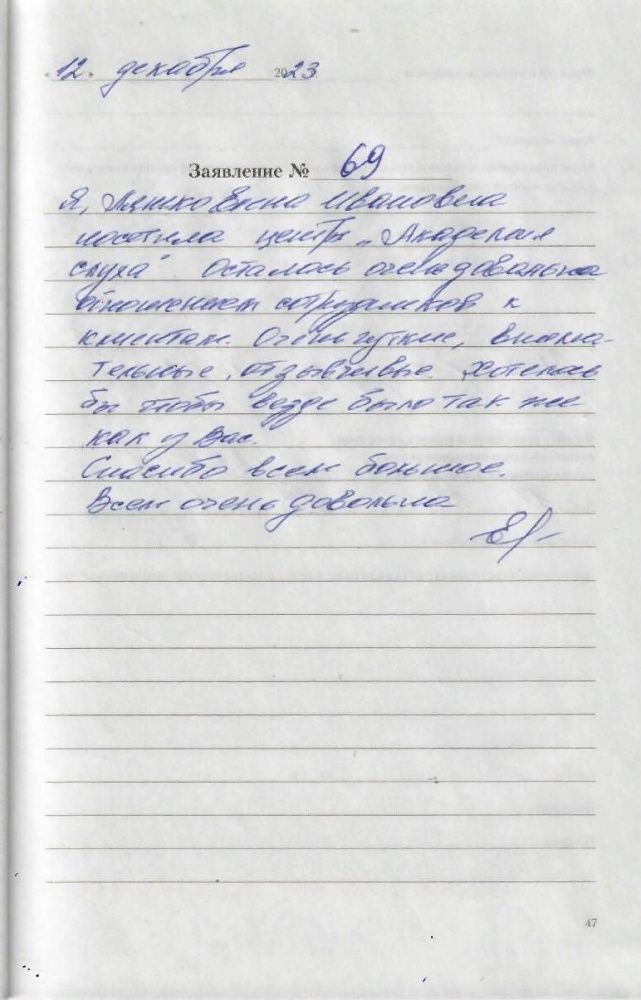 «12» декабря 2023
Заявление № 69
Я, Ляшко Елена Ивановна
посетила центр „Академия
слуха" Осталось очень довольна
отношением сотрудников к
клиентам. Очень чуткие, внима-
тельные, отзывчивые. Хотелось
бы чтобы везде было так же
как у Вас.
Спасибо всем большое.
Всем очень довольна
47